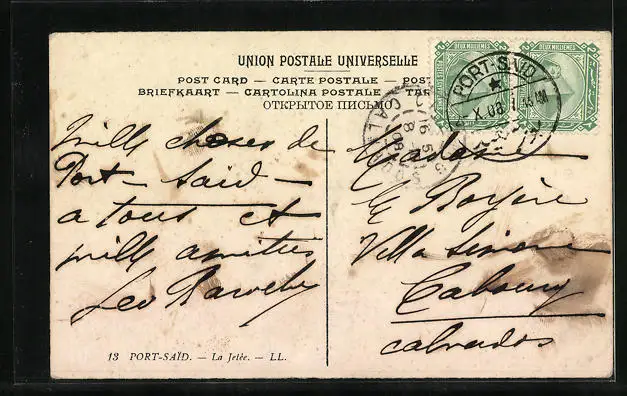 UNION POSTALE UNIVERSELLE
POST CARD — CARTE POSTALE — POST
BRIEFKAART — CARTOLINA POSTALE — TAR
ОТКРЫТОЕ ПИСЬМО
DEUX MILLIEMES
DEUX MILLIEMES
PORT-SAID
mille choses de
Port-Said —
a tous et
mille amitiés
Leo
Madame
Boyère
Villa Simone
Cabourg
Calvados
13 PORT-SAÏD. — La Jetée. — LL.